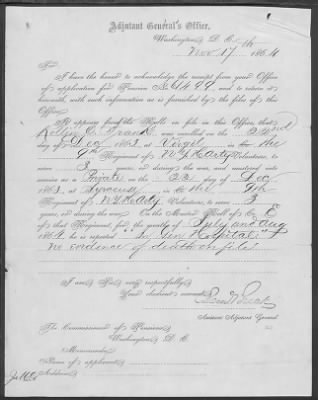 Adjutant General's Office,
Washington, D. C.
Nov 17th, 1864
Sir:
I have the honor to acknowledge the receipt from your Office
of application for Pension No. 499, and to return it
herewith, with such information as is furnished by the files of this
Office.
It appears from the Rolls on file in this Office, that
was enrolled on the 22nd
day of Dec, 1863, at Virgil, in Co. the
9th Regiment of N Y H Arty Volunteers, to
serve 3 years, or during the war, and mustered into
service as a Private on the 22 day of Dec
1863, at Syracuse, in Co. the 9th
Regiment of N Y H Arty, Volunteers, to serve 3
years, or during the war. On the Muster Roll of Co. E
of that Regiment, for the months of July and Aug
1864, he is reported "In Gen Hospital"
no evidence of death on file
I am, Sir, very respectfully,
Your obedient servant,
Assistant Adjutant General
The Commissioner of Pensions,
Washington, D. C.
Memoranda:
Name of applicant,
Address,